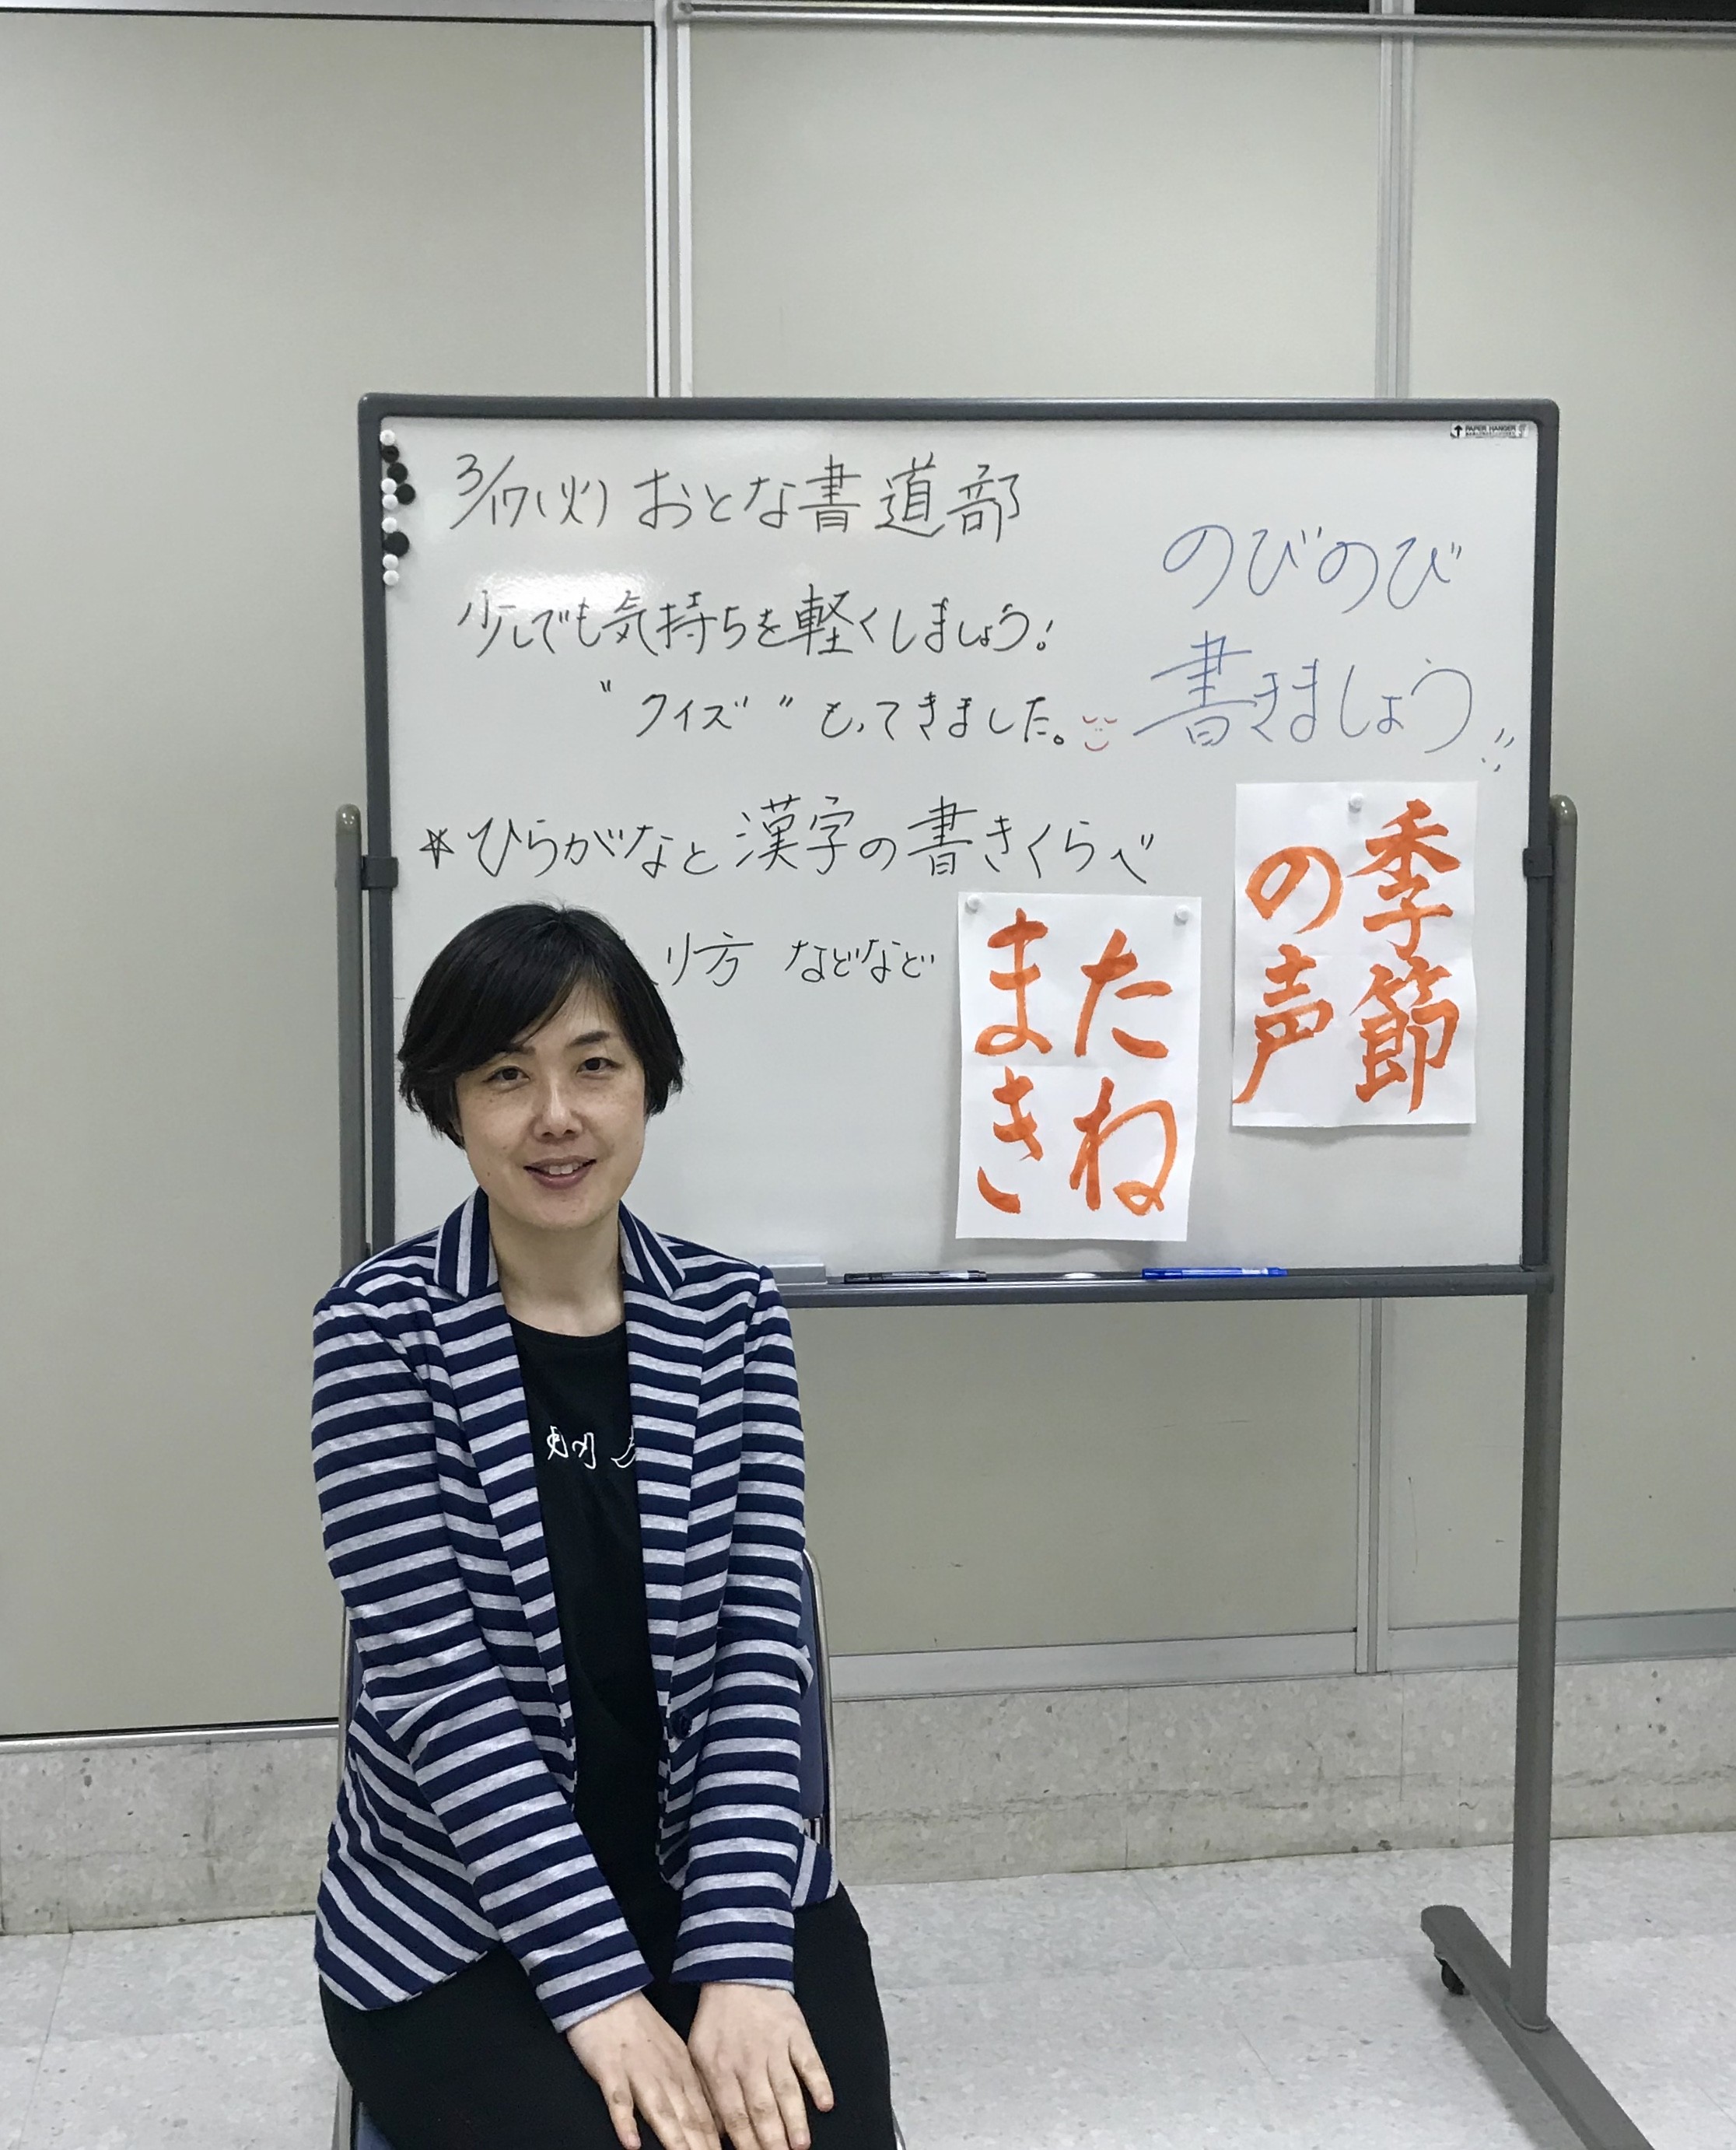 3/17(火) おとな書道部
少しでも気持ちを軽くしましょう!
"クイズ" もってきました。
のびのび
書きましょう!!
*ひらがなと漢字の書きくらべ
り方 などなど
季節
の声
たね
まき
PAPER HANGER